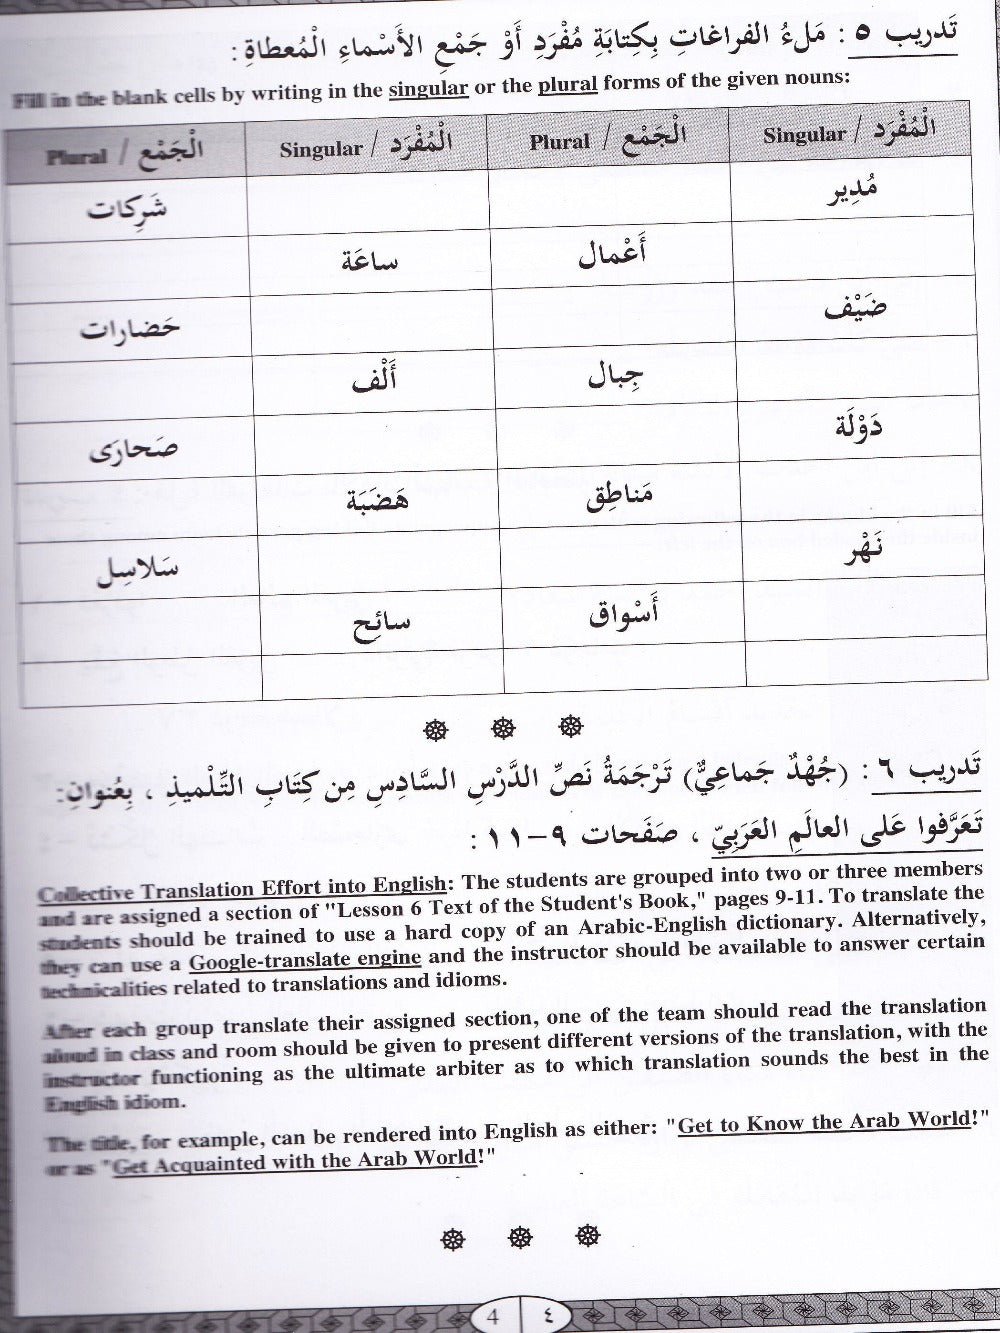 تَدريب ٥ : مَلءُ الفراغاتِ بِكِتابَةِ مُفْرَدِ أَوْ جَمْعِ الأَسْماءِ الْمُعطاةِ :
Fill in the blank cells by writing in the singular or the plural forms of the given nouns:
الْمُفْرَد / Singular الْجَمْع / Plural الْمُفْرَد / Singular الْجَمْع / Plural
مُدِير شَرِكات
أَعْمال ساعَة
ضَيْف حَضارات
جِبال أَلْف
دَوْلَة صَحارَى
مَناطِق هَضَبَة
نَهْر سَلاسِل
أَسْواق سائِح
تَدريب ٦ : (جُهْدٌ جَماعِيٌّ) تَرْجَمَةُ نَصِّ الدَّرْسِ السَّادِسِ مِن كِتَابِ التِّلْميذِ ، بِعُنوانِ:
تَعَرَّفوا عَلى العالَمِ العَرَبِيّ ، صَفَحات ٩-١١ :
Collective Translation Effort into English: The students are grouped into two or three members
and are assigned a section of "Lesson 6 Text of the Student's Book," pages 9-11. To translate the
students should be trained to use a hard copy of an Arabic-English dictionary. Alternatively,
they can use a Google-translate engine and the instructor should be available to answer certain
technicalities related to translations and idioms.
After each group translate their assigned section, one of the team should read the translation
aloud in class and room should be given to present different versions of the translation, with the
instructor functioning as the ultimate arbiter as to which translation sounds the best in the
English idiom.
The title, for example, can be rendered into English as either: "Get to Know the Arab World!"
or as "Get Acquainted with the Arab World!"
4 ٤